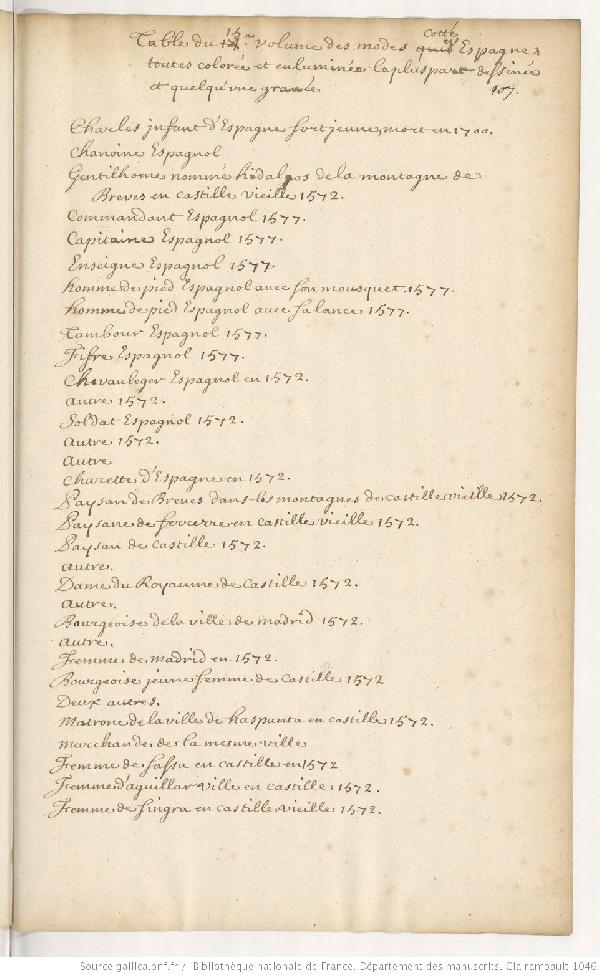 Table du 15.e volume des modes Cotté Espagne,
toutes colorée et enluminée la pluspart dessinée
et quelqu'vne gravée
Charles jnfant d'Espagne fort jeune, mort en 1700.
Chanoine Espagnol
Gentilhome nommé hidalgos de la montagne de
Breves en castille vieille 1572.
Commandant Espagnol 1577.
Capitaine Espagnol 1577.
Enseigne Espagnol 1577.
homme de pied Espagnol avec son mousquet 1577.
homme de pied Espagnol avec sa lance 1577.
Tambour Espagnol 1577.
Fifre Espagnol 1577.
Chevauleger Espagnol en 1572.
autre 1572.
Soldat Espagnol 1572.
autre 1572.
autre
charette d'Espagne en 1572.
Paysan de Breves dans les montagnes de castille vieille 1572.
Paysane de en castille vieille 1572.
Paysan de castille 1572.
autre.
Dame du Royaume de Castille 1572.
autre.
Bourgeoise de la ville de madrid 1572.
autre.
Femme de madrid en 1572.
Bourgeoise jeune femme de Castille 1572
Deux autres.
Matrone de la ville de haspunta en castille 1572.
marchande de la mesme ville
Femme de sassa en castille en 1572
Femme d'aguillar ville en castille 1572.
Femme de singra en castille vieille 1572.
Source gallica.bnf.fr / Bibliothèque nationale de France. Département des manuscrits. Clairambault 1046